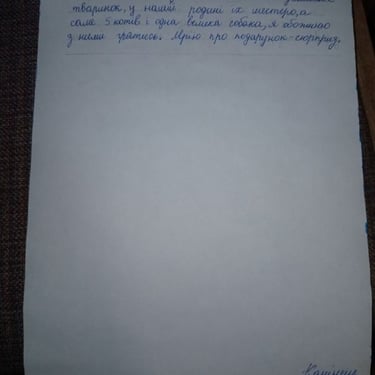 тваринок, у нашій родині їх шестеро, а
саме 5 котів і одна велика собака, я обожнюю
з ними гратись. Мрію про подарунок-сюрприз.